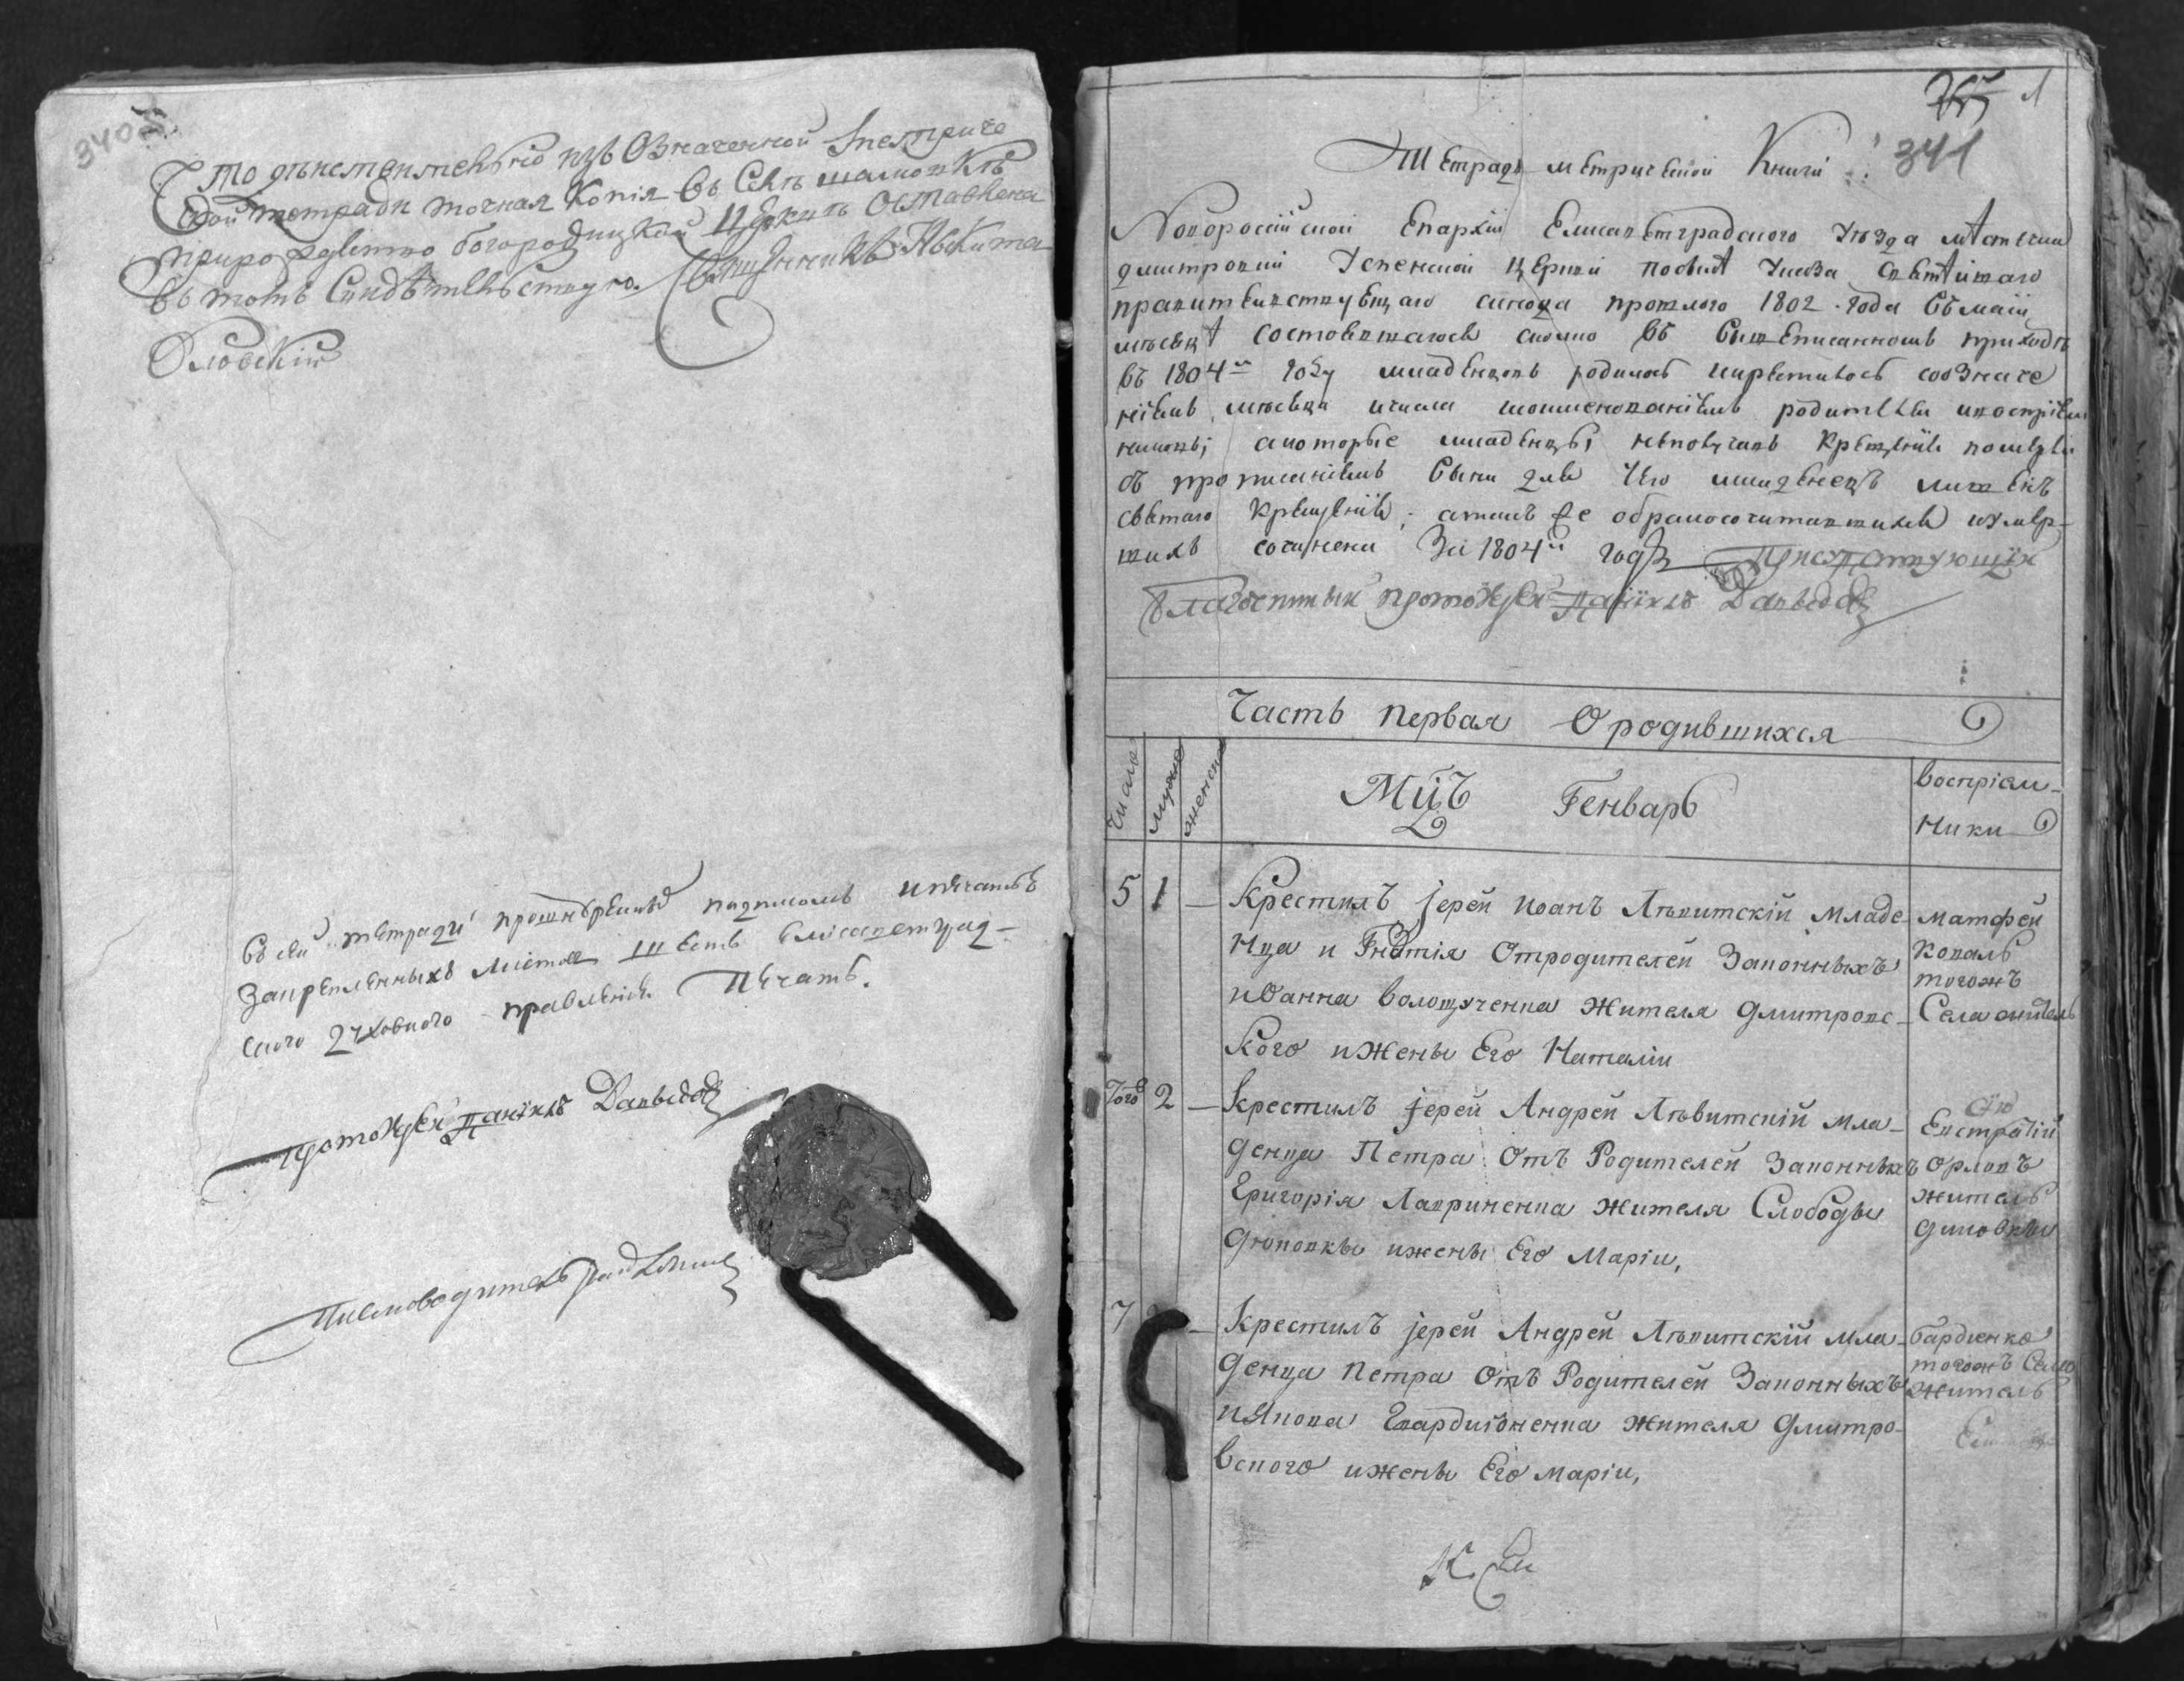 340 об.
Что действительно изъ Означенной Метриче
ской тетради точная Копія въ Селѣ шамовкѣ
при рождество богородицкой Церкви Оставлена
въ томъ Свидѣтельствую. Священникъ Никита
Орловскій
Въ сей тетради прошнуренныхъ подписомъ и печатью
Закрепленныхъ листовъ шесть Елисаветград-
скаго духовного правленія Печать.
протоіерей Даніилъ Давыдовъ
Писмоводитель
341
1
Тетрадь метрической Книги
Новоросійской Епархіи Елисаветградского Уѣзда мѣстечка
дмитровки Успенской Церкви после Указа святѣйшаго
правителствующаго синода прошлого 1802 года въ маіи
месяцѣ состоявшагося сколко въ вышеписанномъ приходѣ
въ 1804м году младенцовъ родилось и крестилось со означе
ніемъ месяца и числа и поименованіемъ родителей и воспріем
никовъ; а которые младенцы неполучивъ Крещенія померли
съ прописаніемъ вины для чего младенецъ лишенъ
святаго Крещенія; а также о бракосочитавшихся и умер-
шихъ сочинена За 1804й годъ Присудствующій
благочинный протоіерей Даніилъ Давыдовъ
Часть Первая О родившихся
Число
Мужеска
женска
Мцъ Генварь
Воспріем-
ники
5 1 — Крестилъ іерей Иоанъ Лѣвитскій Младе
нца Игнатія От родителей Законныхъ
иоанна Волощученка Жителя дмитровс-
кого и Жены Его Наталіи
матфей
коваль
тогожъ
Села житель
Того 2 — Крестилъ іерей Андрей Лѣвитскій мла-
денца Петра Отъ Родителей Законныхъ
Григорія Лавриненка Жителя Слободы
диковки и жены Его Маріи,
Евстратій
Орловъ
житель
диковки
7 — Крестилъ іерей Андрей Лѣвитскій мла-
денца Петра Отъ Родителей Законныхъ
иякова Гвардионенка Жителя дмитро-
вского и жены Его маріи,
тогожъ Села
житель
К Сей